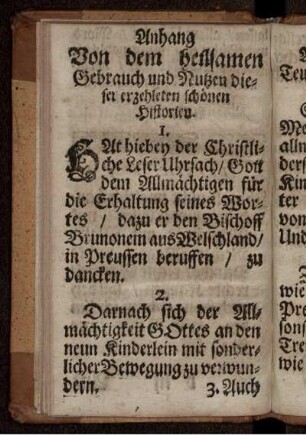 Anhang
Von dem heilsamen
Gebrauch und Nutzen die-
ser erzehleten schönen
Historien.
1.
HAt hiebey der Christli-
che Leser Uhrsach / Gott
dem Allmächtigen für
die Erhaltung seines Wor-
tes / dazu er den Bischoff
Brunonem aus Welschland /
in Preussen beruffen / zu
dancken.
2.
Darnach sich der All-
mächtigkeit GOttes an den
neun Kinderlein mit sonder-
licher Bewegung zu verwun-
dern. 3. Auch